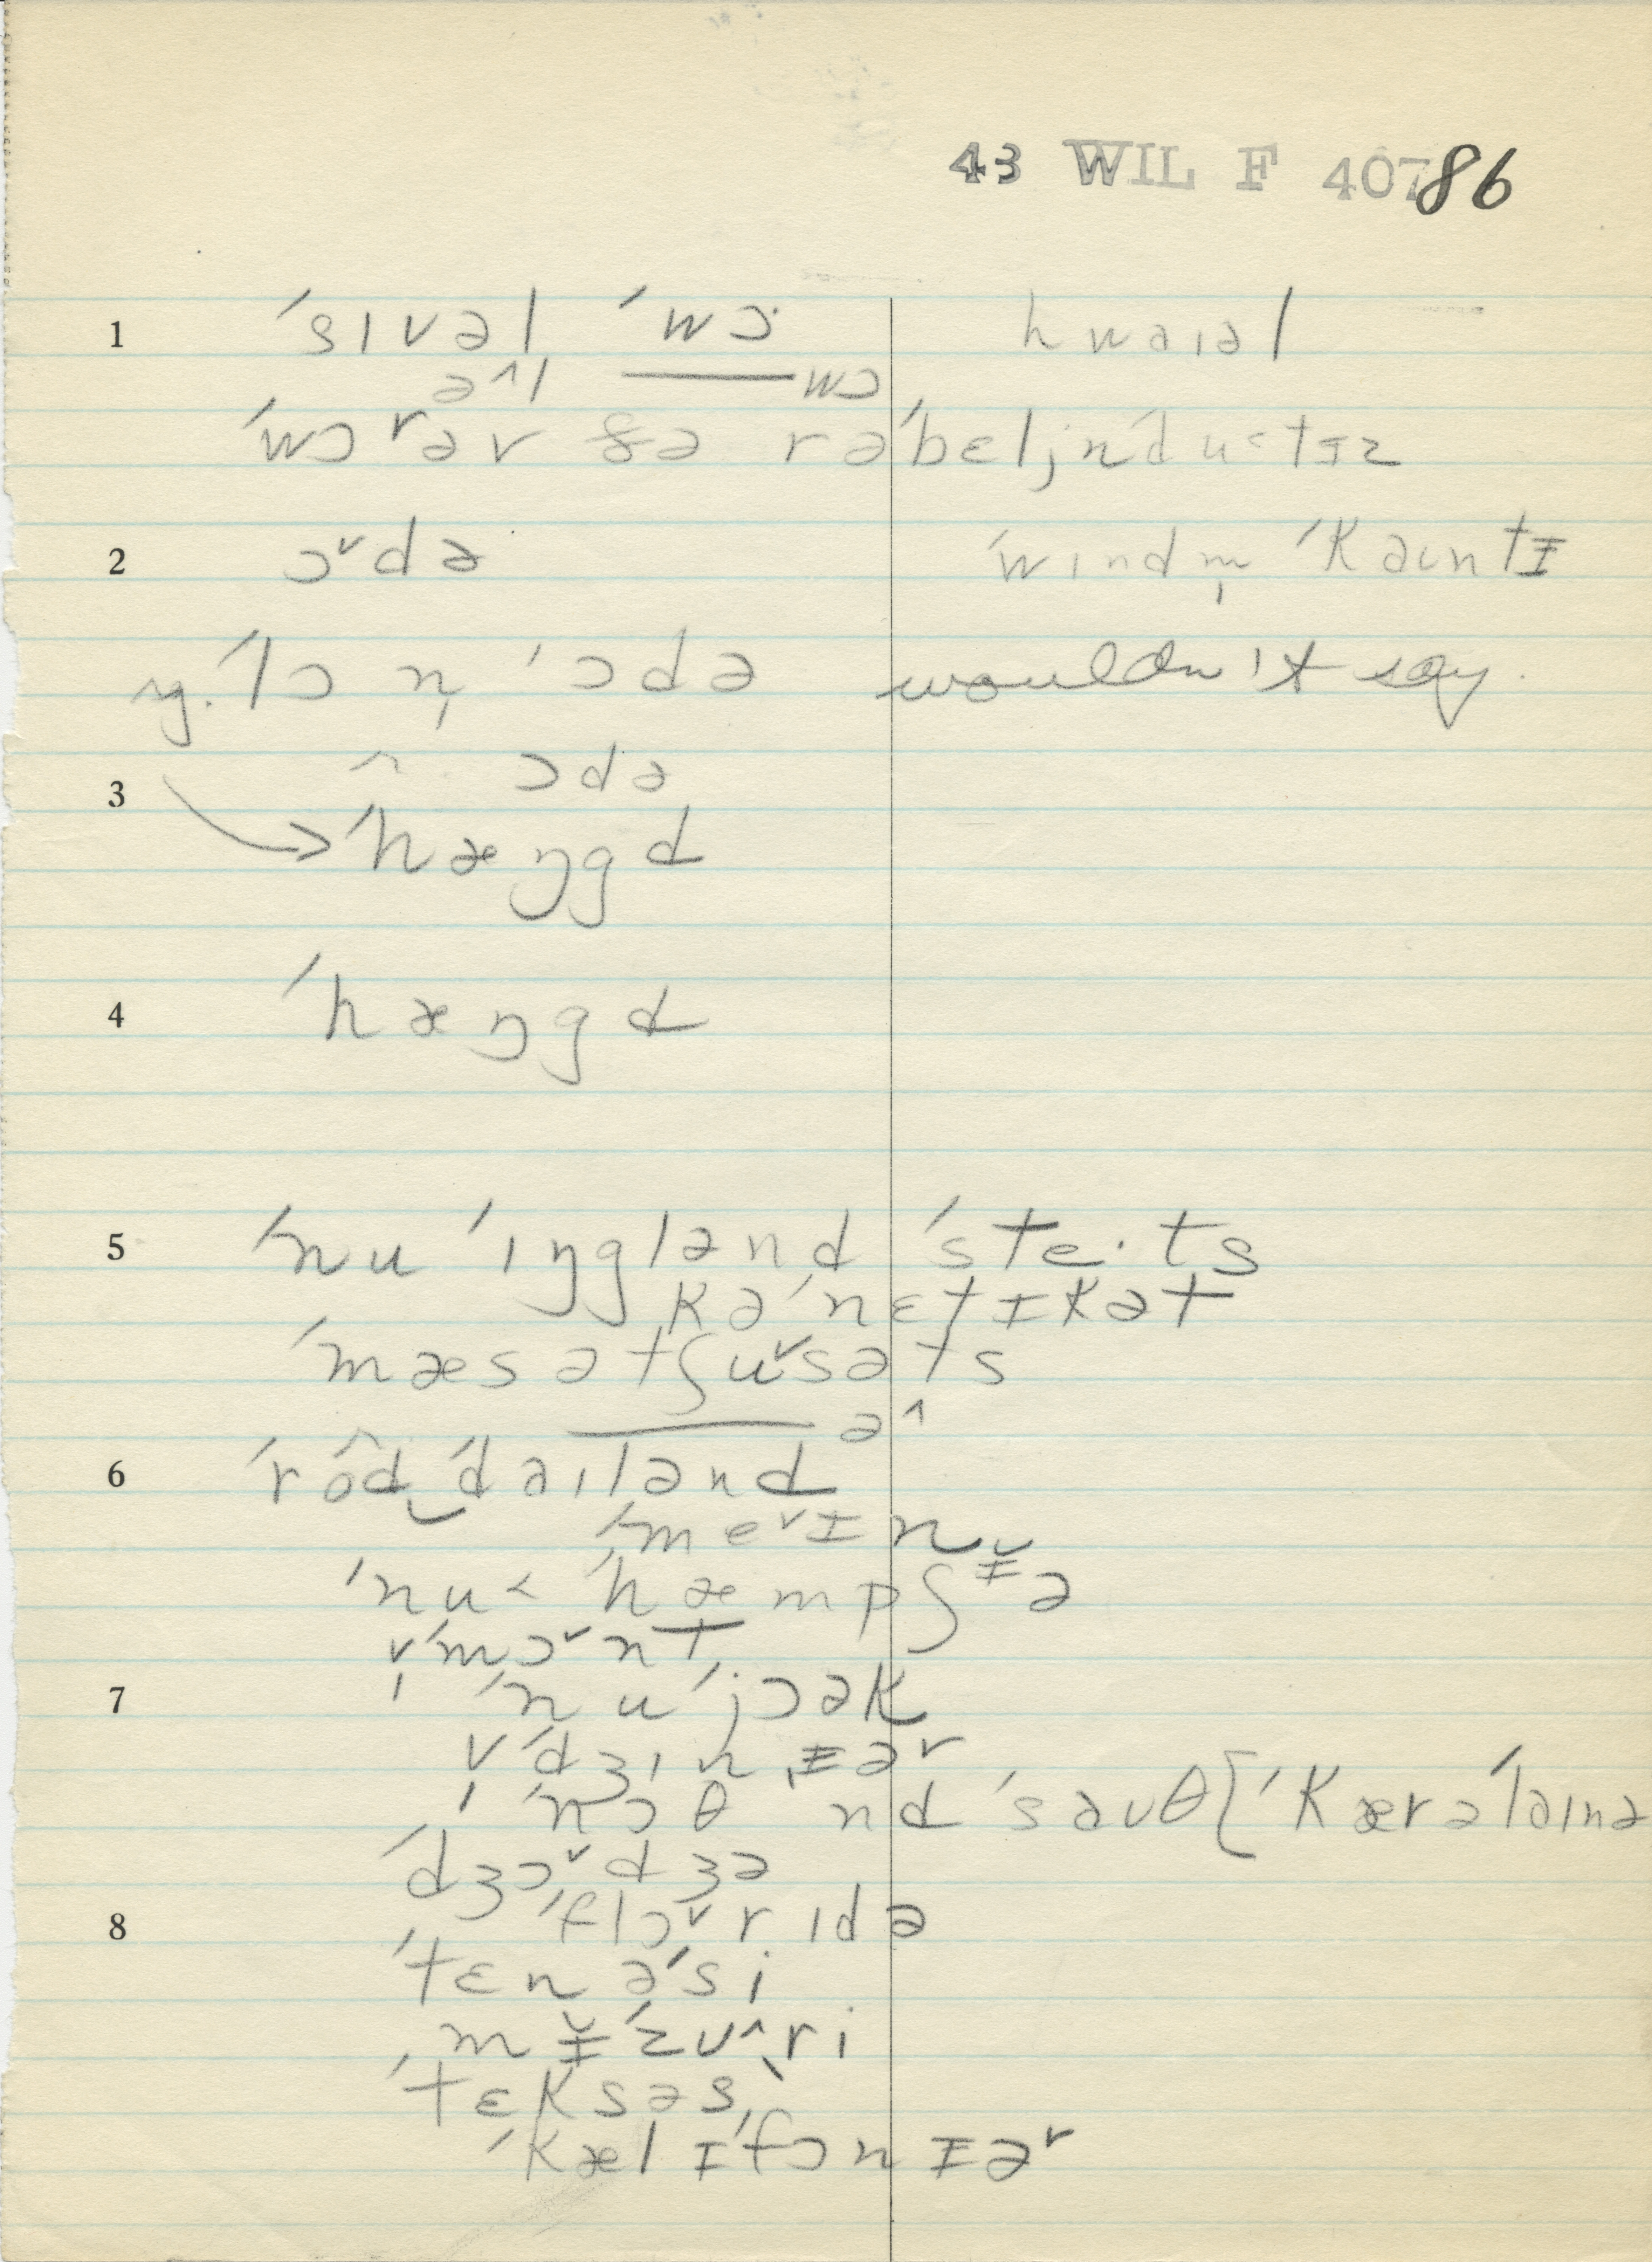 43 WIL F 40786
1 ˈsɪvəl ˈwɔ· hwaɪəl
ə^l ——wɔ
ˈwɔ rəv ðə rəˈbeljn
2 ɔ˅də ˈwɪndm̩ ˈkaʊntɪ
ˈlɔ n̩ ˈɔdə wouldn't say
3 ^ ɔdə
→ ˈhæŋgd
4 ˈhæŋgd
5 ˈnu ˈɪŋglənd ˈste·ts
kəˈnɛtɪkət
ˈmæsətʃu˅səts
——ə^
6 ˈrôd‿ˈdaɪlənd
ˈme˅ɪn
ˈnu< ˈhæmpʃɪ̆ə
v̩ˈmɔ˅nt
7 ˈnuˈjɔək
v̩ˈdʒɪnɪəʳ
ˈnɔθ nd ˈsaʊθ[ˈkærəˈlaɪnə
ˈdʒɔ˅dʒə
8 ˈflɔ˅rɪdə
ˈtɛnəˈsi
mɪ̆ˈzʊ^ri
ˈtɛksəs
ˈkælɪˈfɔnɪəʳ